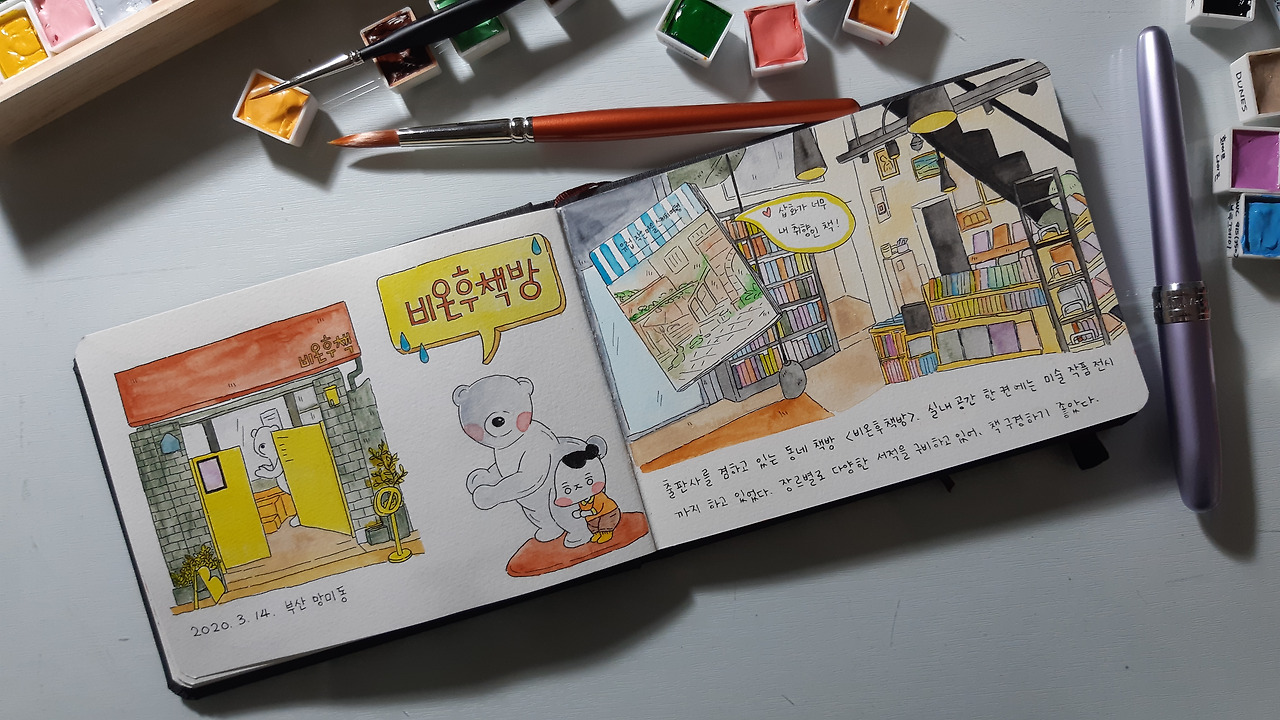 비온후책방
비온후책
2020. 3. 14. 부산 망미동
삽화가 너무
내 취향인 책!
출판사를 겸하고 있는 동네 책방 <비온후책방>. 실내 공간 한 켠에는 미술 작품 전시
까지 하고 있었다. 장르별로 다양한 서적을 구비하고 있어. 책 구경하기 좋았다.
DUNES